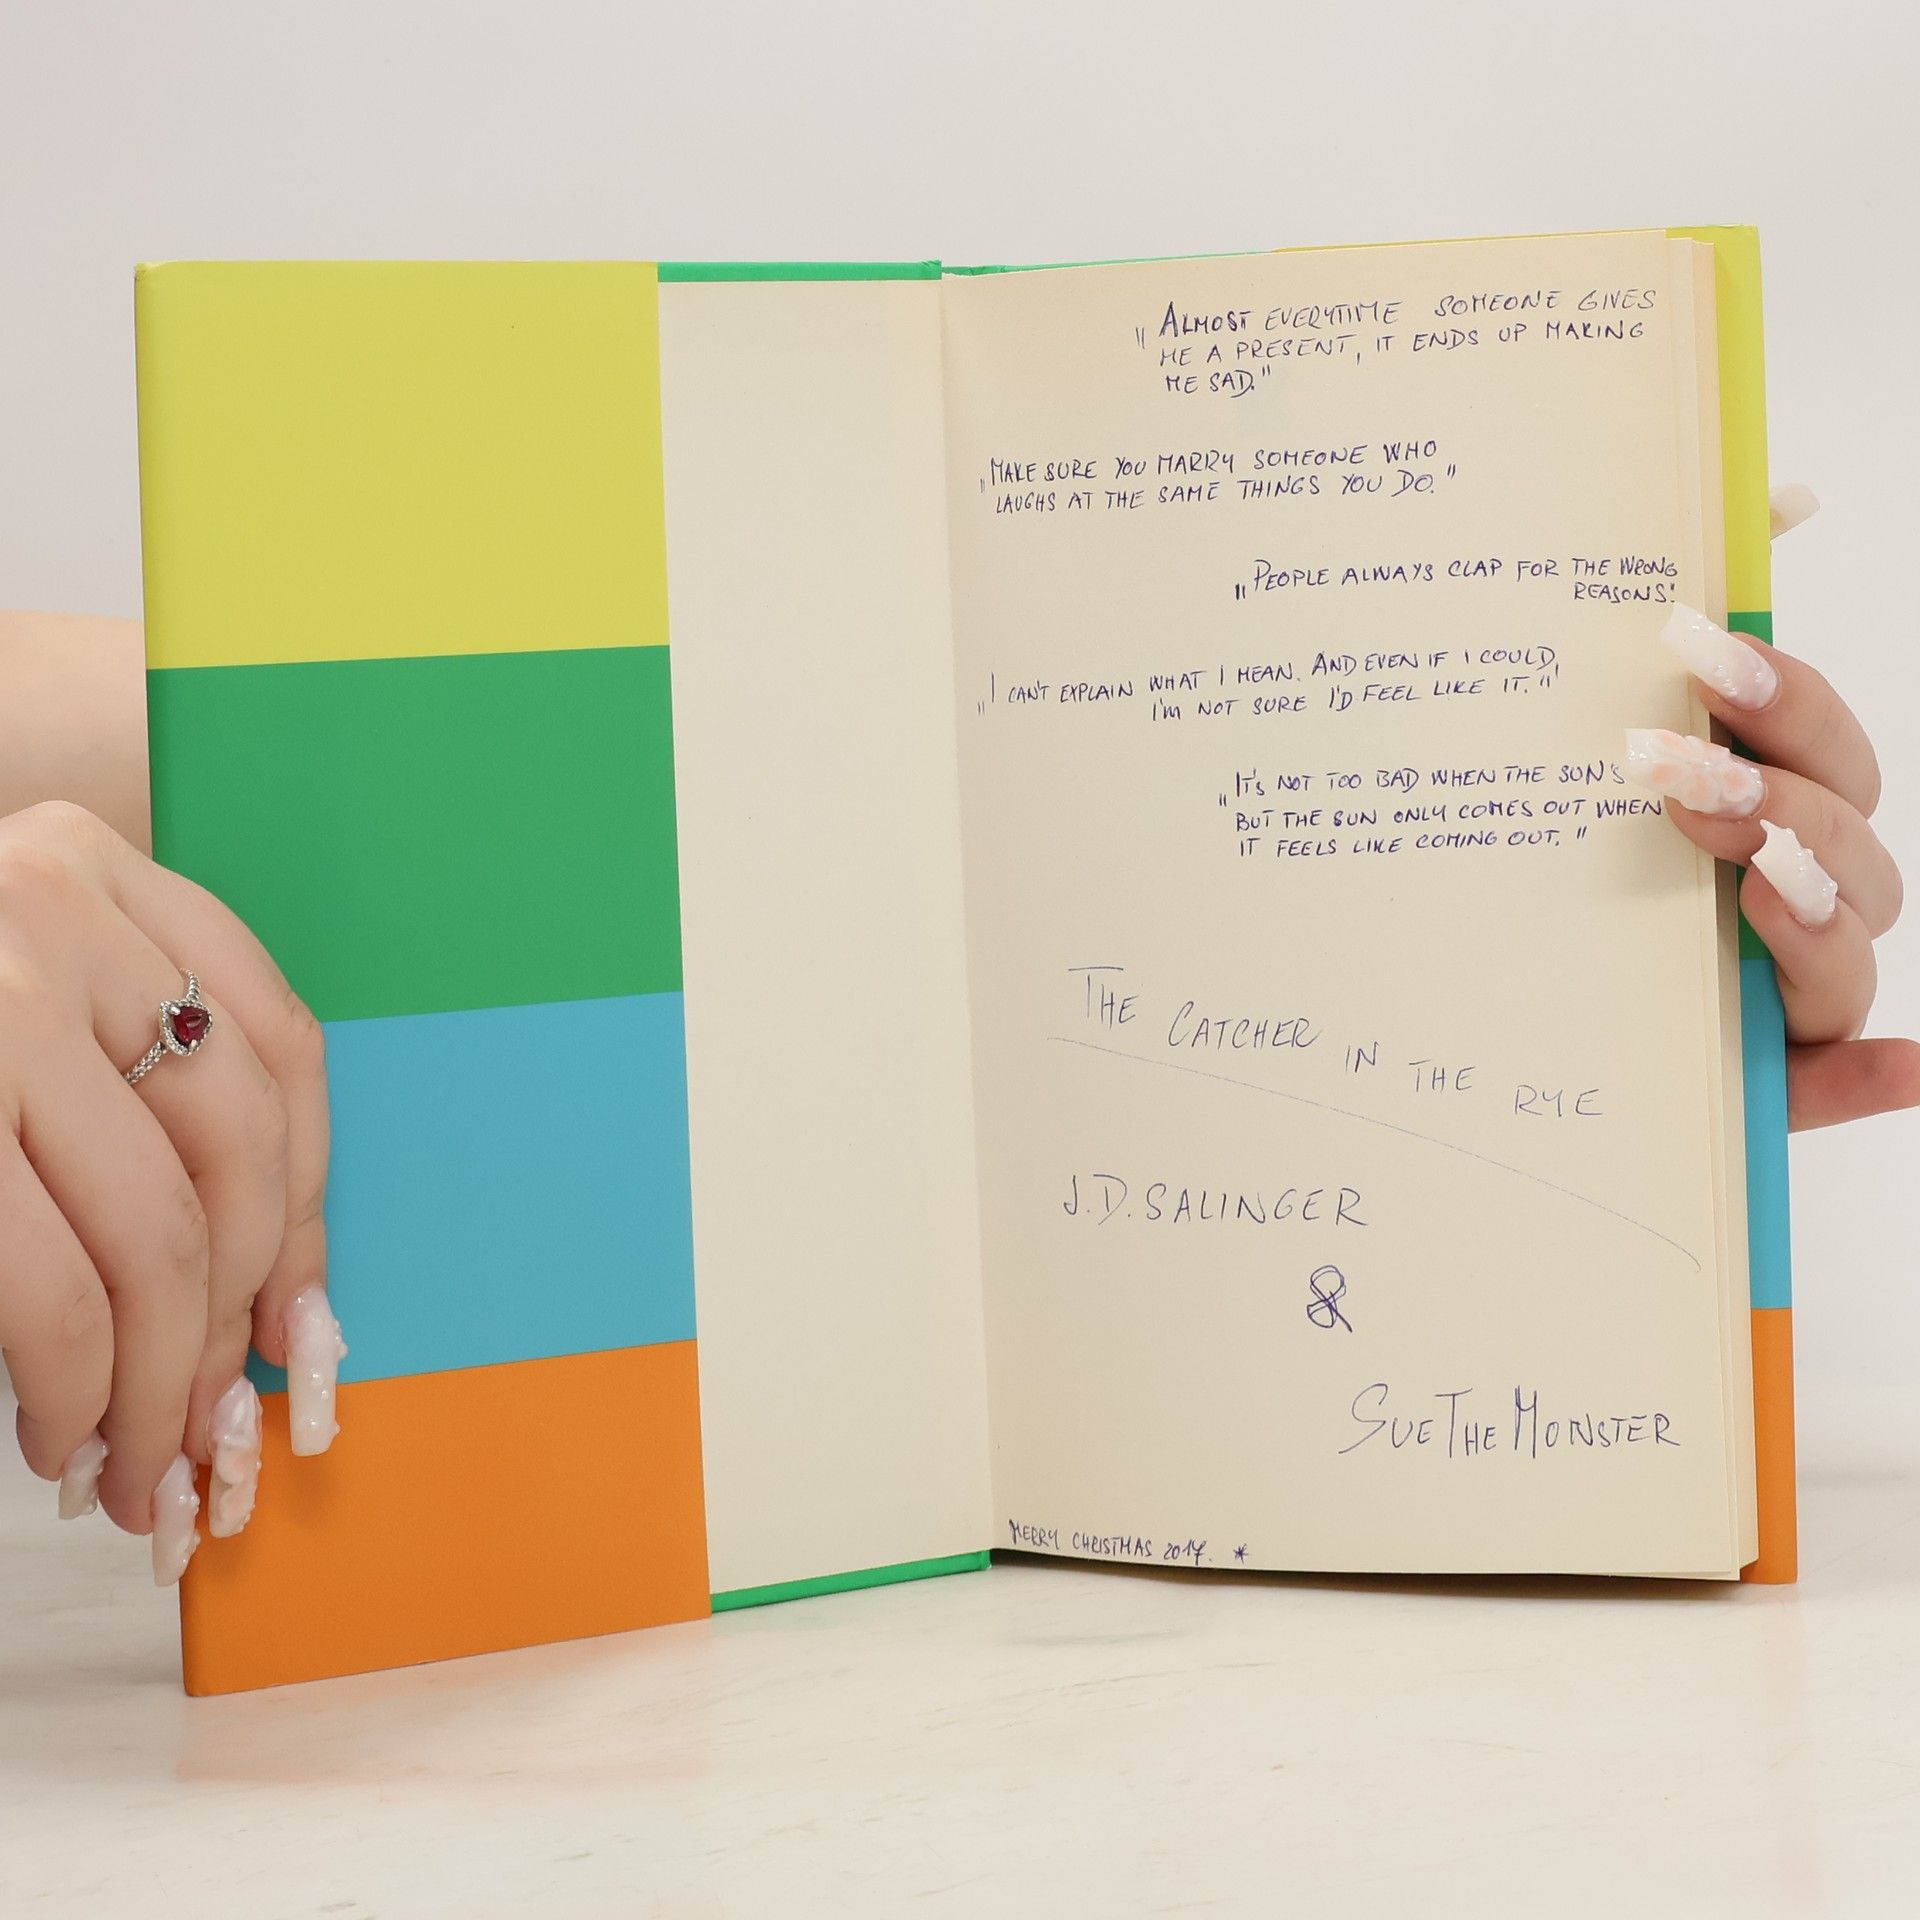 „Almost everytime someone gives
me a present, it ends up making
me sad."
„Make sure you marry someone who
laughs at the same things you do."
„People always clap for the wrong
reasons."
„I can't explain what I mean. And even if I could,
I'm not sure I'd feel like it."
„It's not too bad when the sun's
but the sun only comes out when
it feels like coming out."
The Catcher in the Rye
J.D. Salinger
&
SueTheMonster
Merry Christmas 2017. *